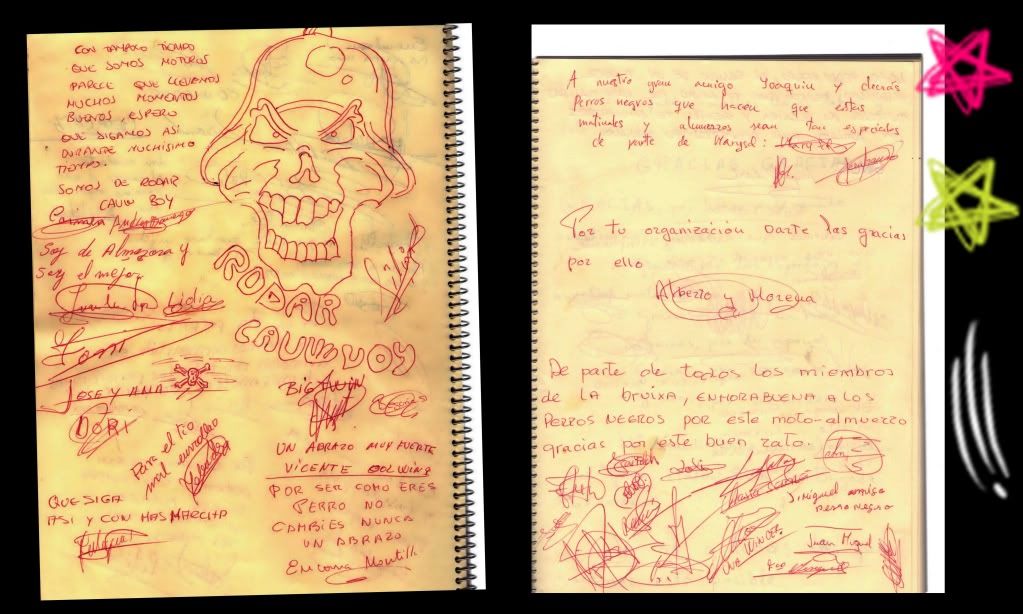 CON TAMPOCO TIEMPO
QUE SOMOS MOTEROS
PARECE QUE LLEVEMOS
MUCHOS MOMENTOS
BUENOS, ESPERO
QUE SIGAMOS ASI
DURANTE MUCHISIMO
TIEMPO.
SOMOS DE RODAR
CAUW BOY
Carmen
Soy de Almazora y
soy el mejor
Lidia
Toni
JOSE Y ANA
DORI
Para el tio
mas enrollao
QUE SIGA
ASI Y CON MAS MARCHA
RODAR
CAUWVOY
BIG TWIN
UN ABRAZO MUY FUERTE
VICENTE GOLWING
POR SER COMO ERES
PERRO NO
CAMBIES NUNCA
UN ABRAZO
Encarna Montilla
A nuestro gran amigo Joaquin y demás
Perros negros que hacen que estas
matinales y almuerzos sean tan especiales
de parte de Marysol:
Por tu organizacion Darte las gracias
por ello
Alberto y Morena
De parte de todos los miembros
de LA bruixa, ENHORABUENA A LOS
PERROS NEGROS POR este moto-almuerzo
gracias por este buen rato.
J. Miguel amigo
PERRO NEGRO
Juan Miguel